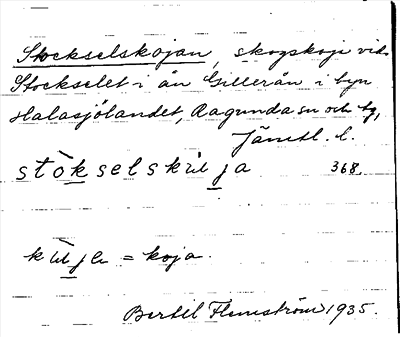 Stockselskojan, skogskoja vid
Stockselet i ån Gillerån i byn
Halasjölandet, Ragunda sn och tg,
Jämtl. l.
stòkselskʉlja 368.
kʉ̀ljα = koja.
Bertil Flemström 1935.